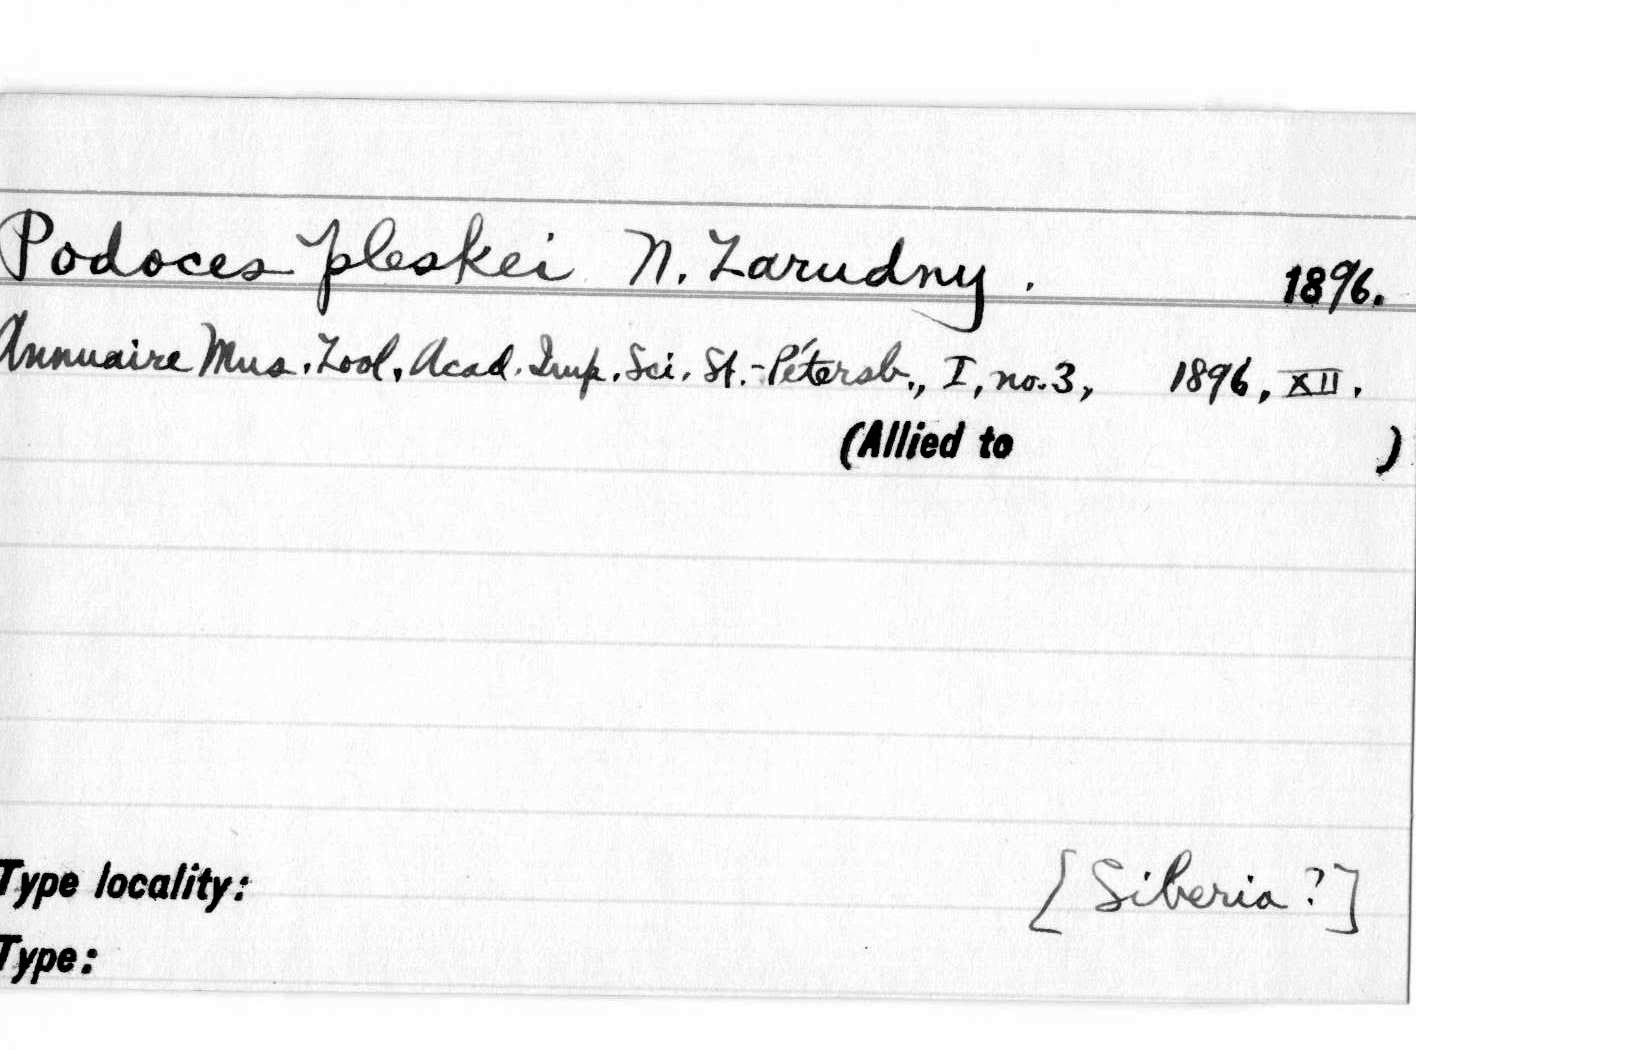 Podoces pleskei N. Zarudny. 1896.
Annuaire Mus. Zool. Acad. Imp. Sci. St.-Pétersb., I, no. 3, 1896, XII.
(Allied to )
Type locality: [Siberia?]
Type: